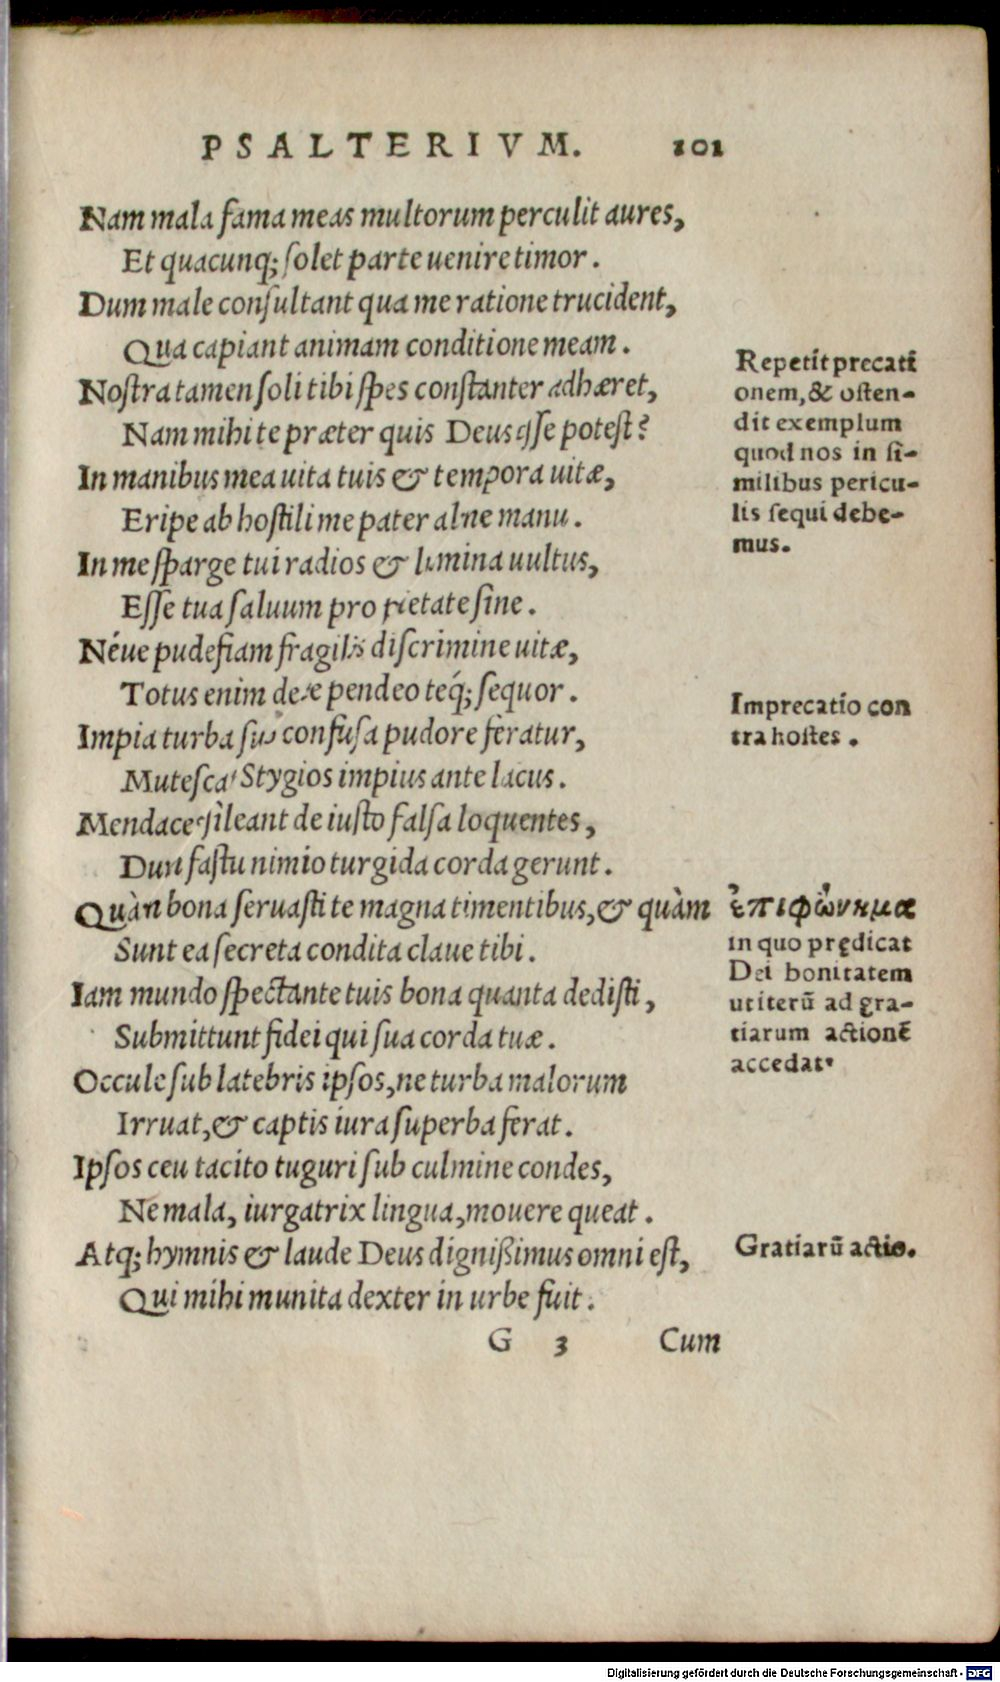 PSALTERIVM. 101
Nam mala fama meas multorum perculit aures,
Et quacunq; solet parte uenire timor.
Dum male consultant qua me ratione trucident,
Qua capiant animam conditione meam.
Nostra tamen soli tibi spes constanter adhæret,
Nam mihi te præter quis Deus esse potest?
In manibus mea uita tuis & tempora uitæ,
Eripe ab hostili me pater alme manu.
In me sparge tui radios & lumina uultus,
Esse tua saluum pro pietate sine.
Néue pudefiam fragilis discrimine uitæ,
Totus enim de te pendeo teq́; sequor.
Impia turba suo confusa pudore feratur,
Mutescat Stygios impius ante lacus.
Mendaces sileant de iusto falsa loquentes,
Dum fastu nimio turgida corda gerunt.
Quàm bona seruasti te magna timentibus, & quàm
Sunt ea secreta condita claue tibi.
Iam mundo spectante tuis bona quanta dedisti,
Submittunt fidei qui sua corda tuæ.
Occule sub latebris ipsos, ne turba malorum
Irruat, & captis iura superba ferat.
Ipsos ceu tacito tuguri sub culmine condes,
Ne mala, iurgatrix lingua, mouere queat.
Atq; hymnis & laude Deus dignißimus omni est,
Qui mihi munita dexter in urbe fuit.
G 3 Cum
Repetit precati
onem, & osten-
dit exemplum
quod nos in si-
milibus pericu-
lis sequi debe-
mus.
Imprecatio con
tra hostes.
ἐπιφώνημα
in quo prędicat
Dei bonitatem
ut iterū ad gra-
tiarum actionē
accedat.
Gratiarū actio.
Digitalisierung gefördert durch die Deutsche Forschungsgemeinschaft - DFG